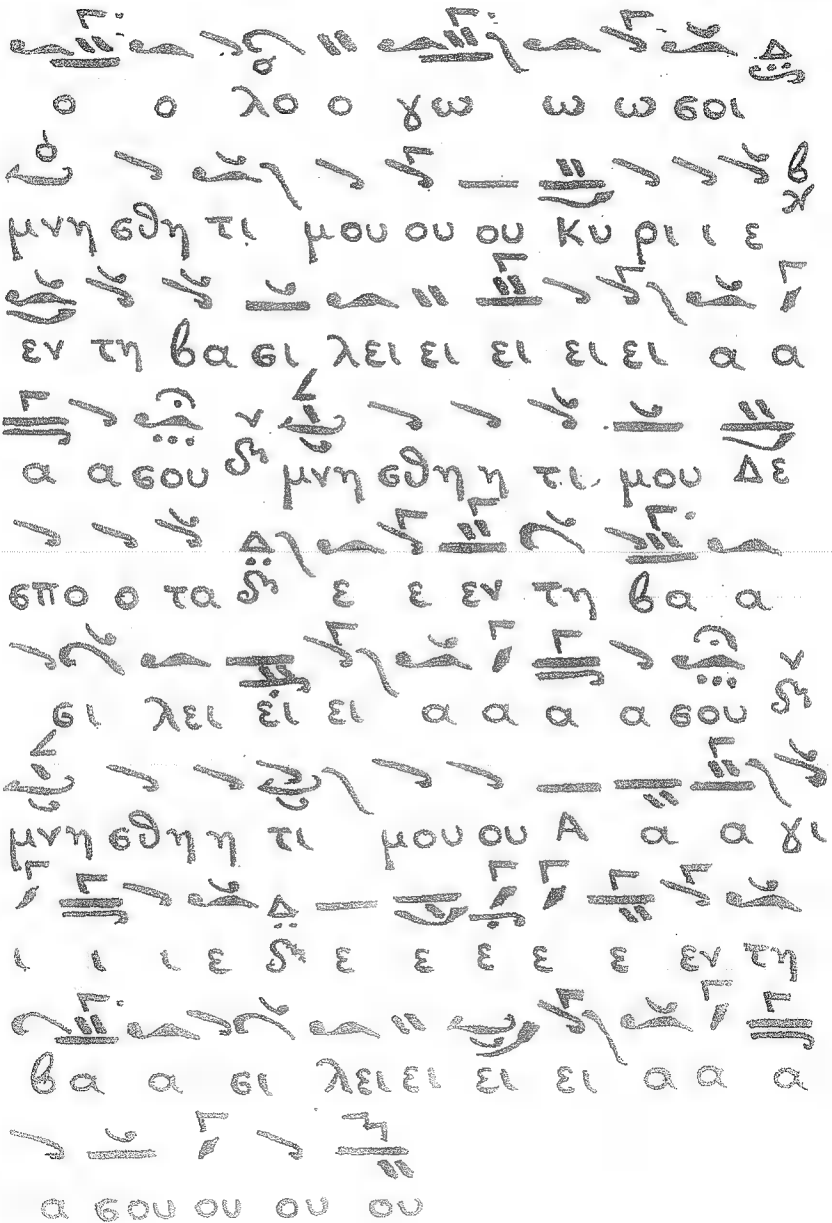 ο ο λο ο γω ω ω σοι
μνη σθη τι μου ου ου Κυ ρι ι ε
εν τη βα σι λει ει ει ει ει α α
α α σου μνη σθη η τι μου Δε
σπο ο τα ε ε εν τη βα α
σι λει ει ει α α α α σου
μνη σθη η τι μου ου Α α α γι
ι ι ι ε ε ε ε ε ε εν τη
βα α α σι λει ει ει ει α α α
α σου ου ου ου